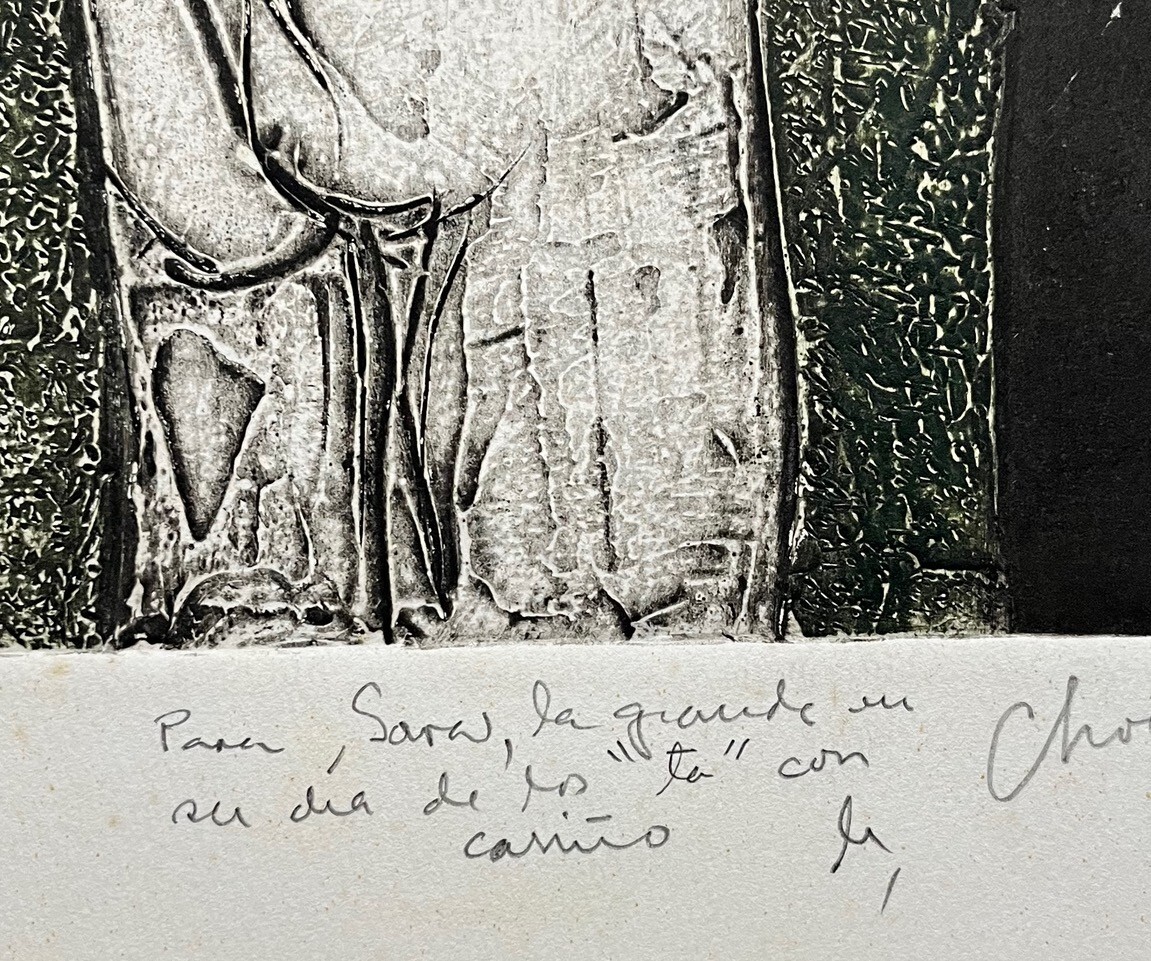 Para, Sara, la grande en
su día de los "ta" con
cariño
Cho